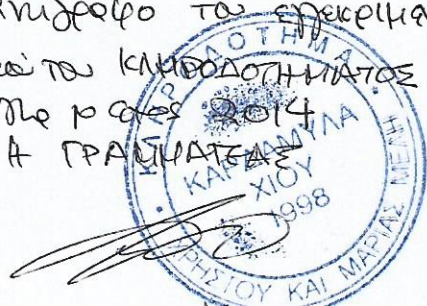 του εγκεκριμέ
του ΚΛΗΡΟΔΟΤΗΜΑΤΟΣ
2014
Η ΓΡΑΜΜΑΤΕΑΣ
ΚΛΗΡΟΔΟΤΗΜΑ
ΚΑΡΔΑΜΥΛΑ
ΧΙΟΥ
1998
ΧΡΗΣΤΟΥ ΚΑΙ ΜΑΡΙΑΣ ΜΕΛΗ